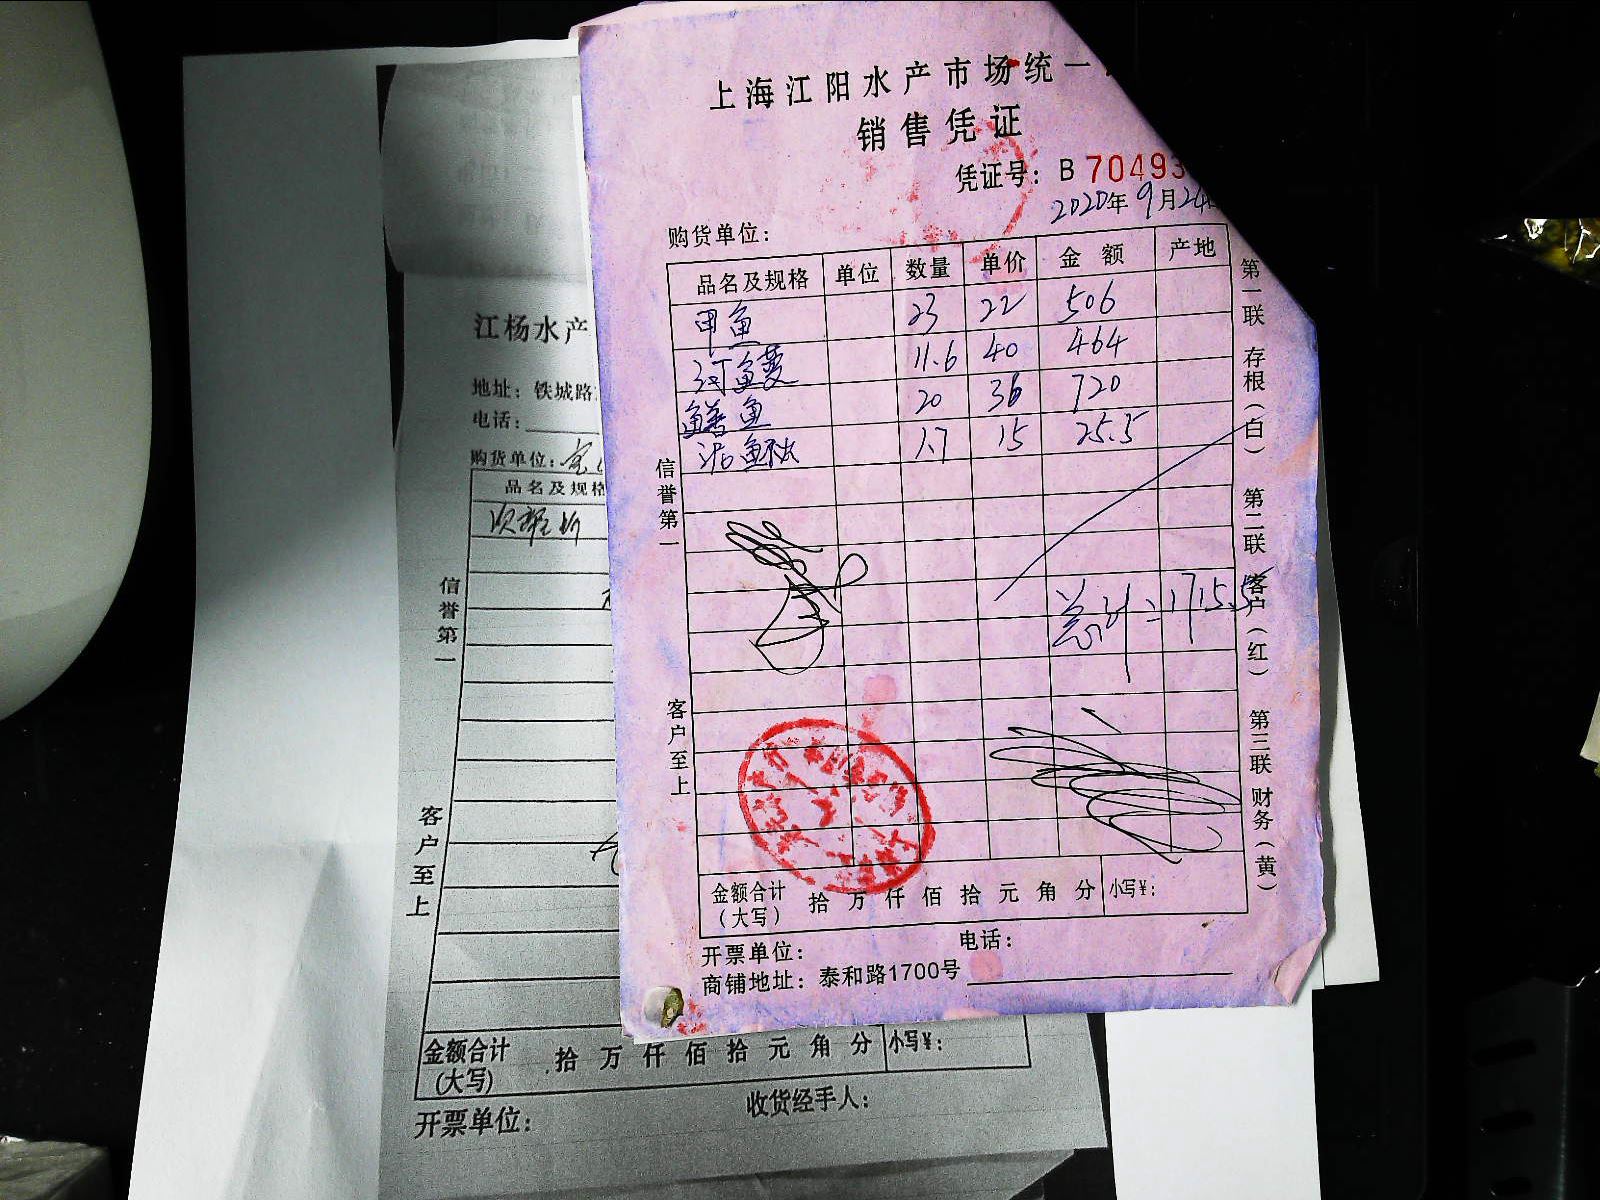 上海江阳水产市场统一
销售凭证
凭证号：B 70493
2020年9月24
购货单位：
品名及规格 单位 数量 单价 金额 产地
甲鱼 23 22 506
河鱼蔓 11.6 40 464
鳝鱼 20 36 720
泥鳅 1.7 15 25.5
总计：1715.5
信誉第一
客户至上
第一联 存根（白） 第二联 客户（红） 第三联 财务（黄）
金额合计（大写） 拾万仟佰拾元角分 小写¥：
开票单位： 电话：
商铺地址：泰和路1700号
江杨水产
地址：铁城路
电话：
购货单位：
品名及规格
信誉第一
客户至上
金额合计(大写) 拾万仟佰拾元角分 小写¥：
开票单位： 收货经手人：